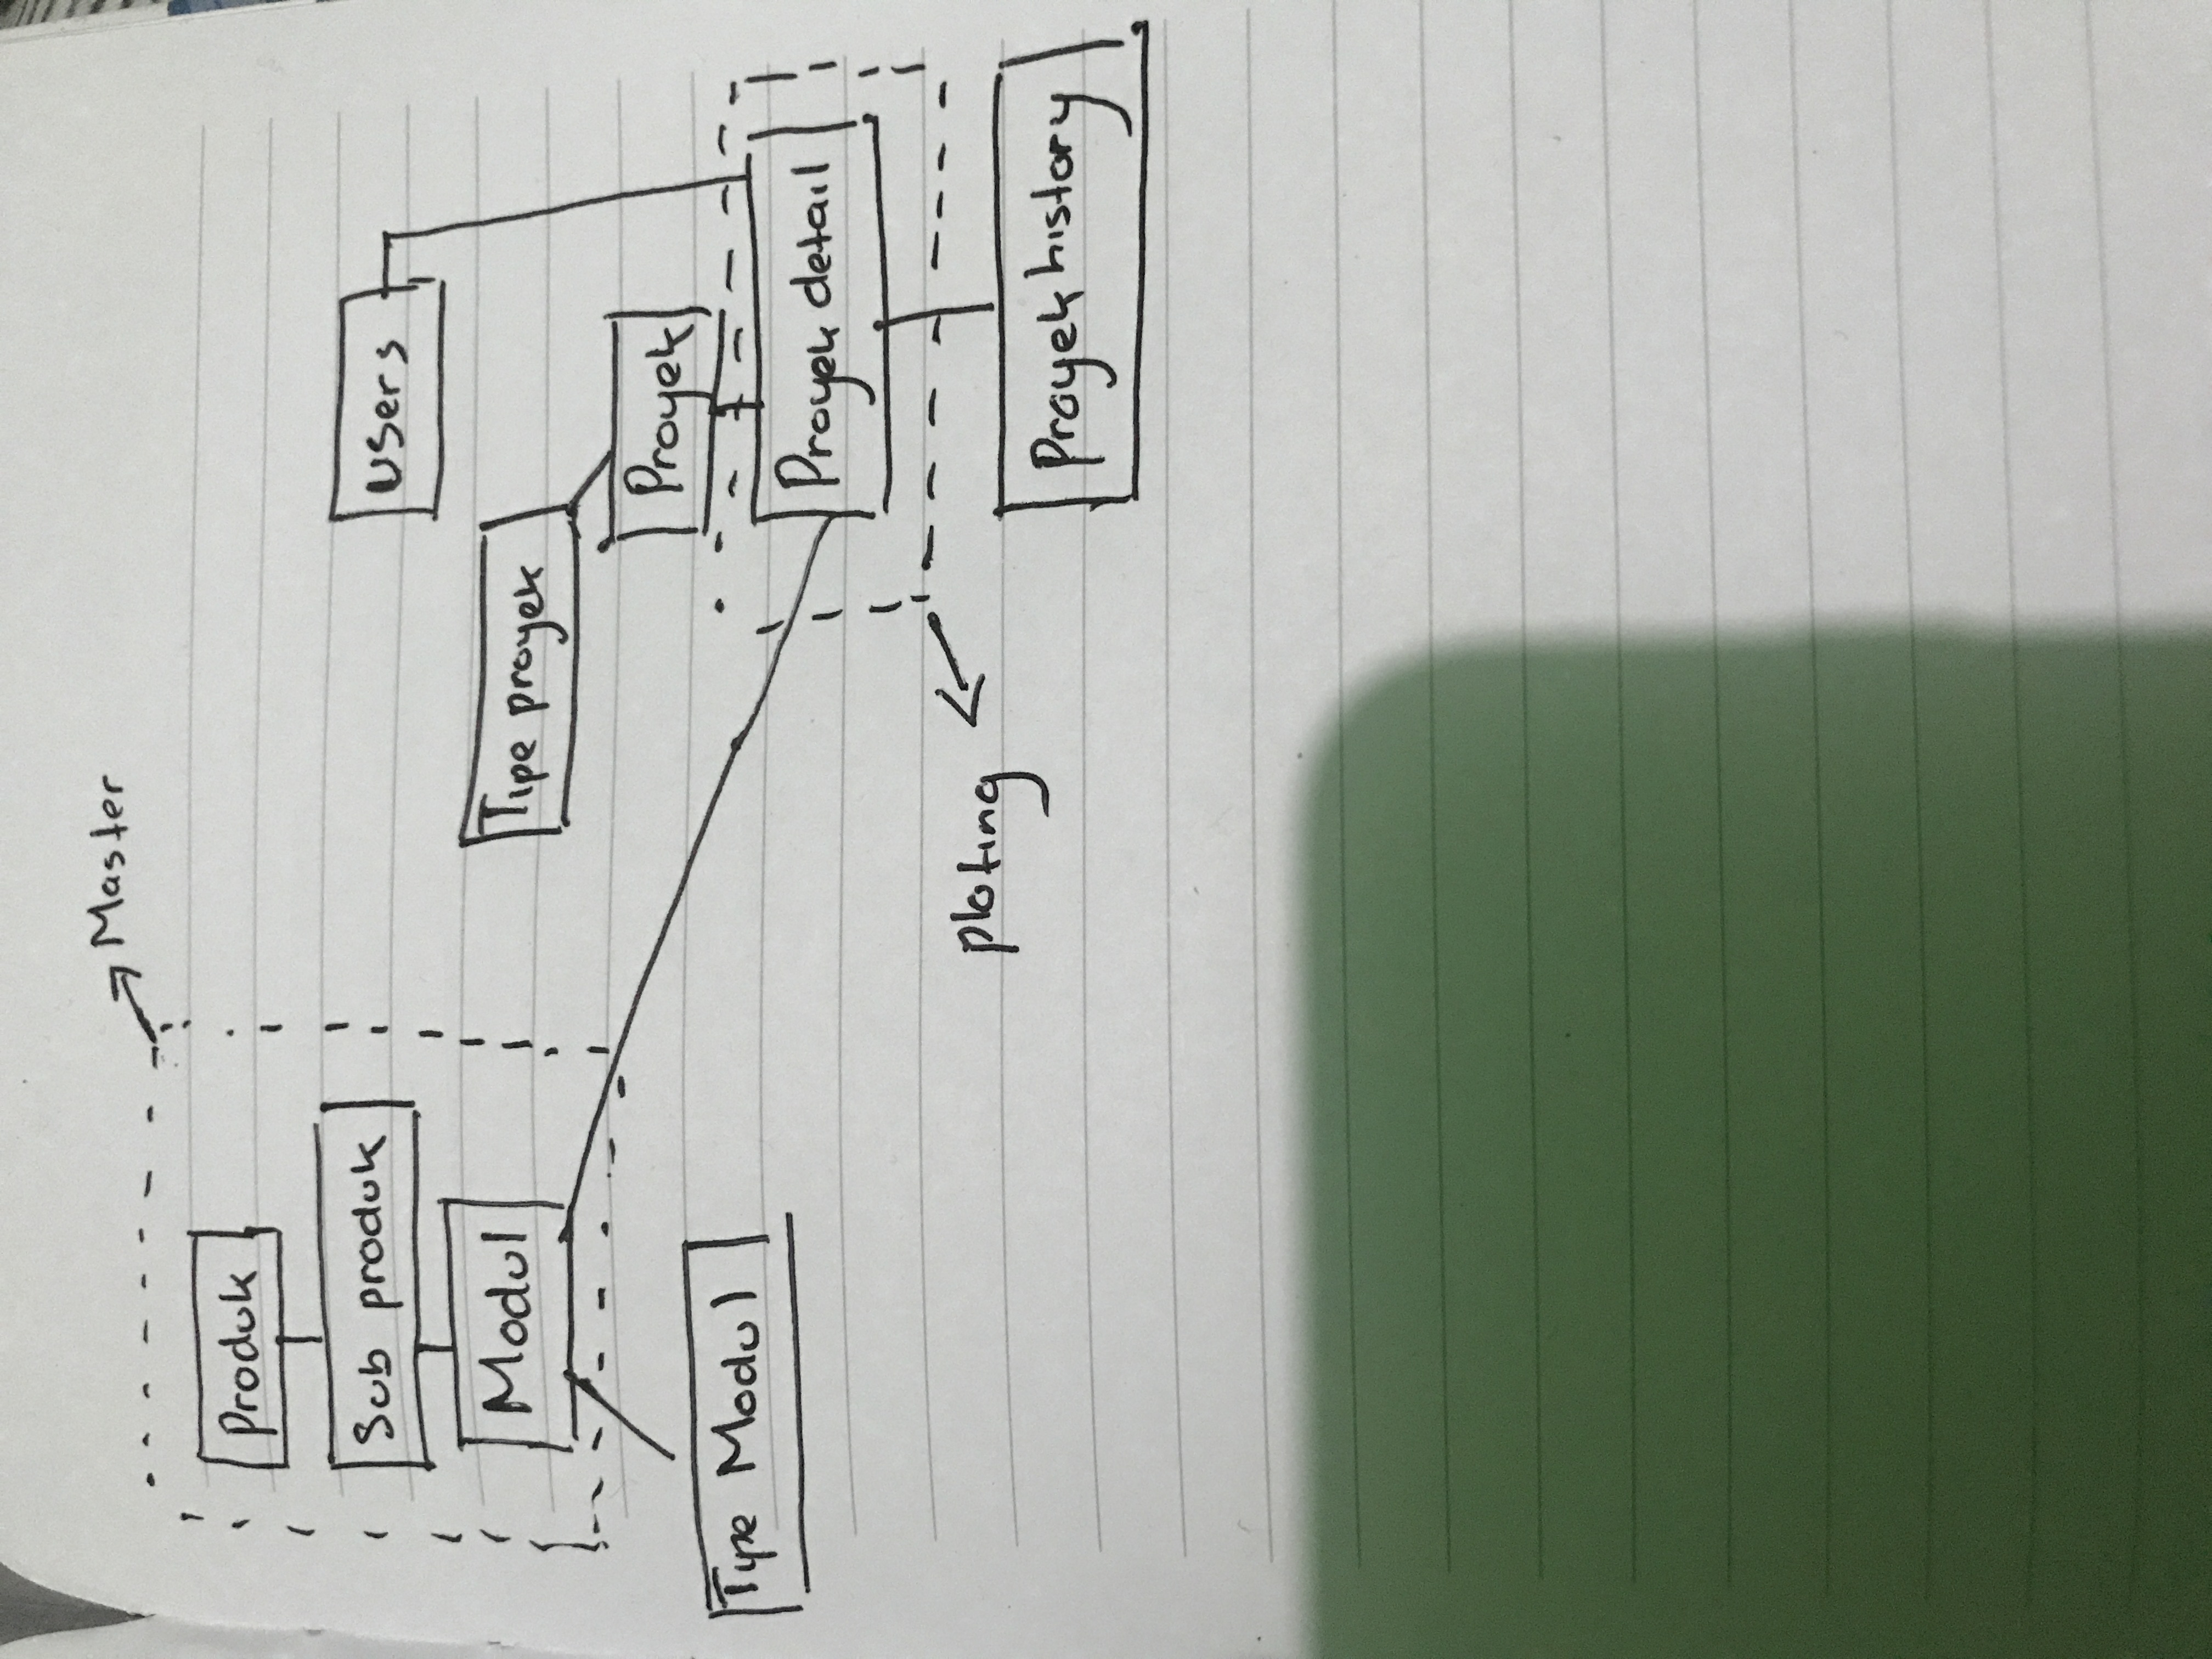 Master
Produk
Sub produk
Modul
Tipe Modul
Users
Tipe proyek
Proyek
Proyek detail
ploting
Proyek history